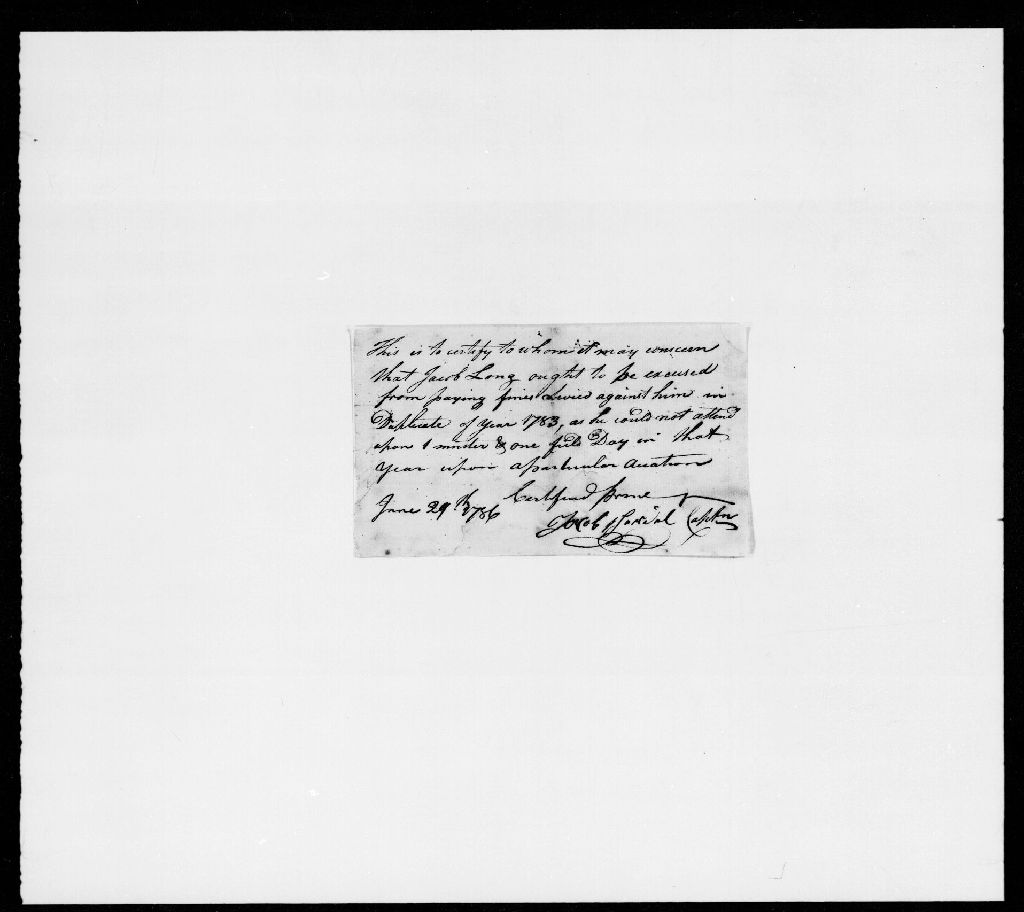 This is to certify to whom it may conscern
that Jacob Long ought to be excused
from paying fines Levied against him in
Duplicate of year 1783, as he could not attend
upon 1 muster & one field Day in that
year upon aparticular
June 29th 1786 Certified prme
Jacob Captn